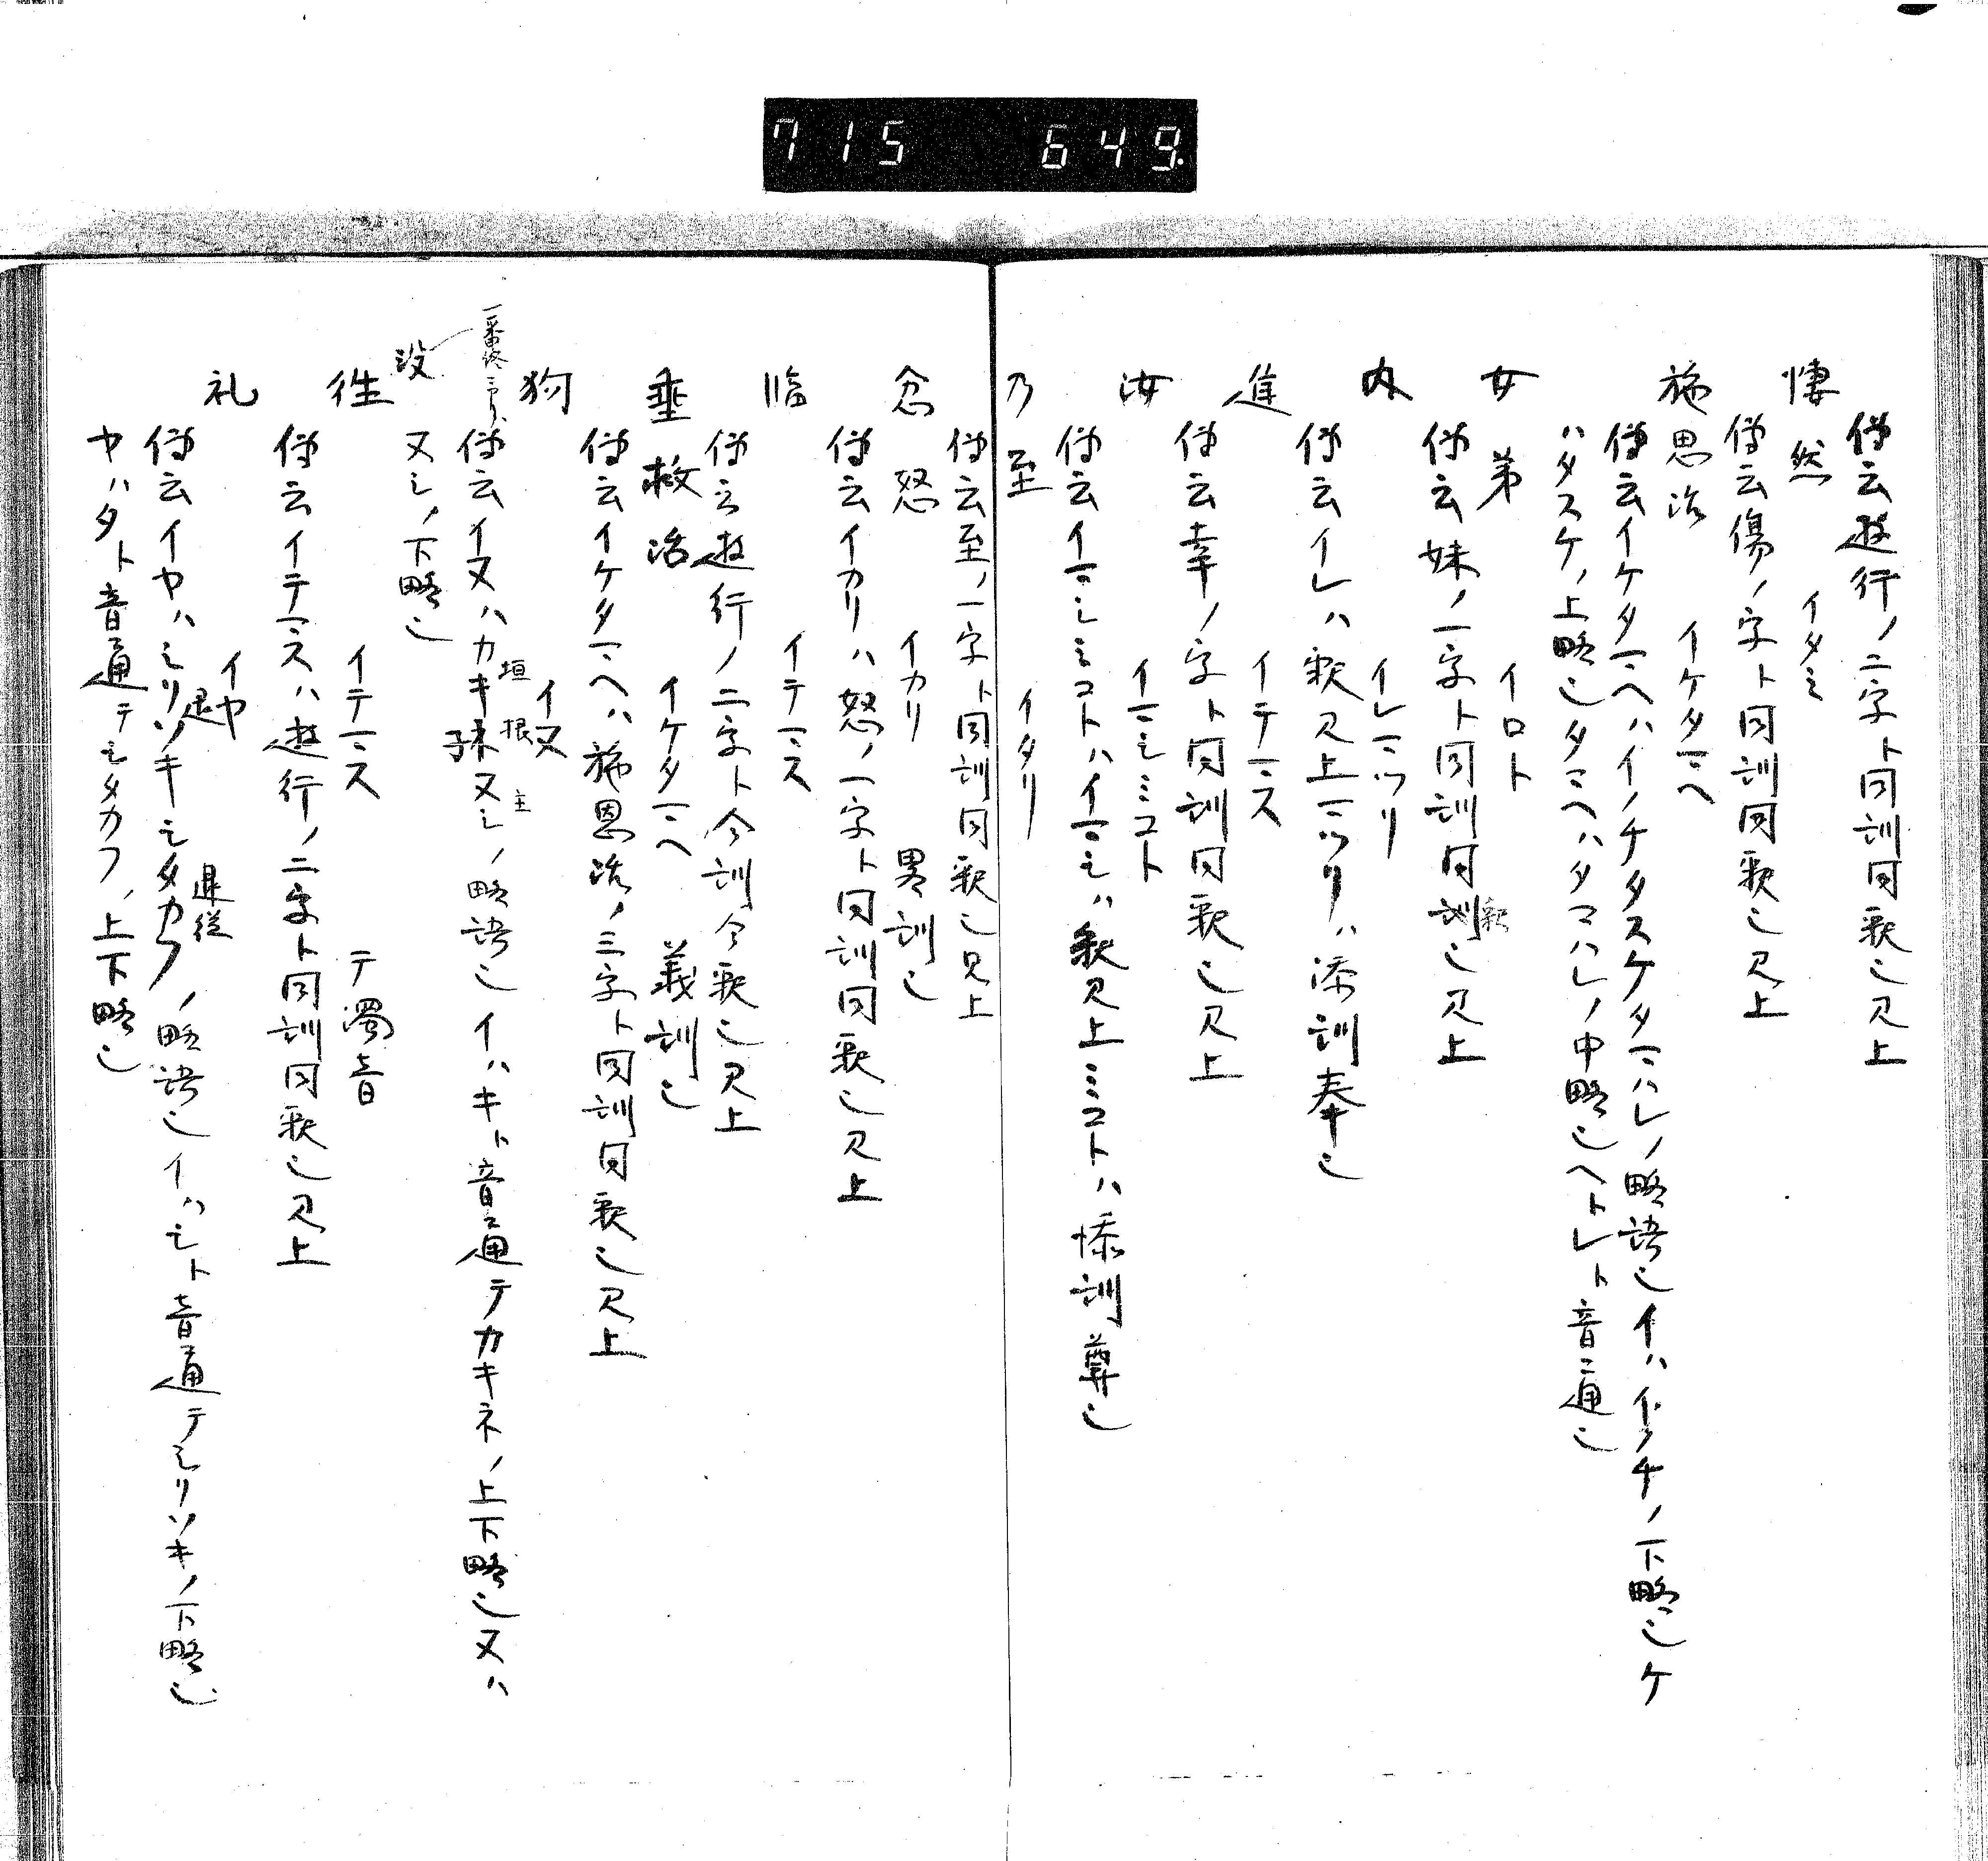 715 649
傳云遊行ノ二字ト同訓同釈也見上
悽然 イタミ
傳云傷ノ字ト同訓同釈也見上
施恩治 イケタマヘ
傳云イケタマヘハイノチタスケタマハレノ略語也イハイノチノ下略也ケ
ハタスケノ上略也タマヘハタマハレノ中略也ヘトレト音ニ通也
女弟 イロト
傳云妹ノ一字ト同訓同釈也見上
内 イレマツリ
傳云イレハ釈見上マツリハ添訓奉也
進 イテマス
傳云幸ノ字ト同訓同釈也見上
汝 イマシミコト
傳云イマシミコトハイマシハ釈見上ミコトハ添訓尊也
乃至 イタリ
傳云至ノ一字ト同訓同釈也見上
忿怒 イカリ 畧訓也
傳云イカリハ怒ノ一字ト同訓同釈也見上
臨 イテマス
傳云遊行ノ二字ト今訓今釈也見上
垂救治 イケタマヘ 義訓也
傳云イケタマヘハ施恩治ノ三字ト同訓同釈也見上
狗 イヌ
傳云イヌハカキネヌシノ略語也イハキト音通テカキネノ上下略也又ハ
垣根主
ヌシノ下略也
没
徃 イテマス テ濁音
傳云イテマスハ遊行ノ二字ト同訓同釈也見上
礼 イヤ
傳云イヤハシリソキシタカフノ略語也イハシト音通テシリソキノ下略也
退 退従
ヤハタト音通テシタカフノ上下略也